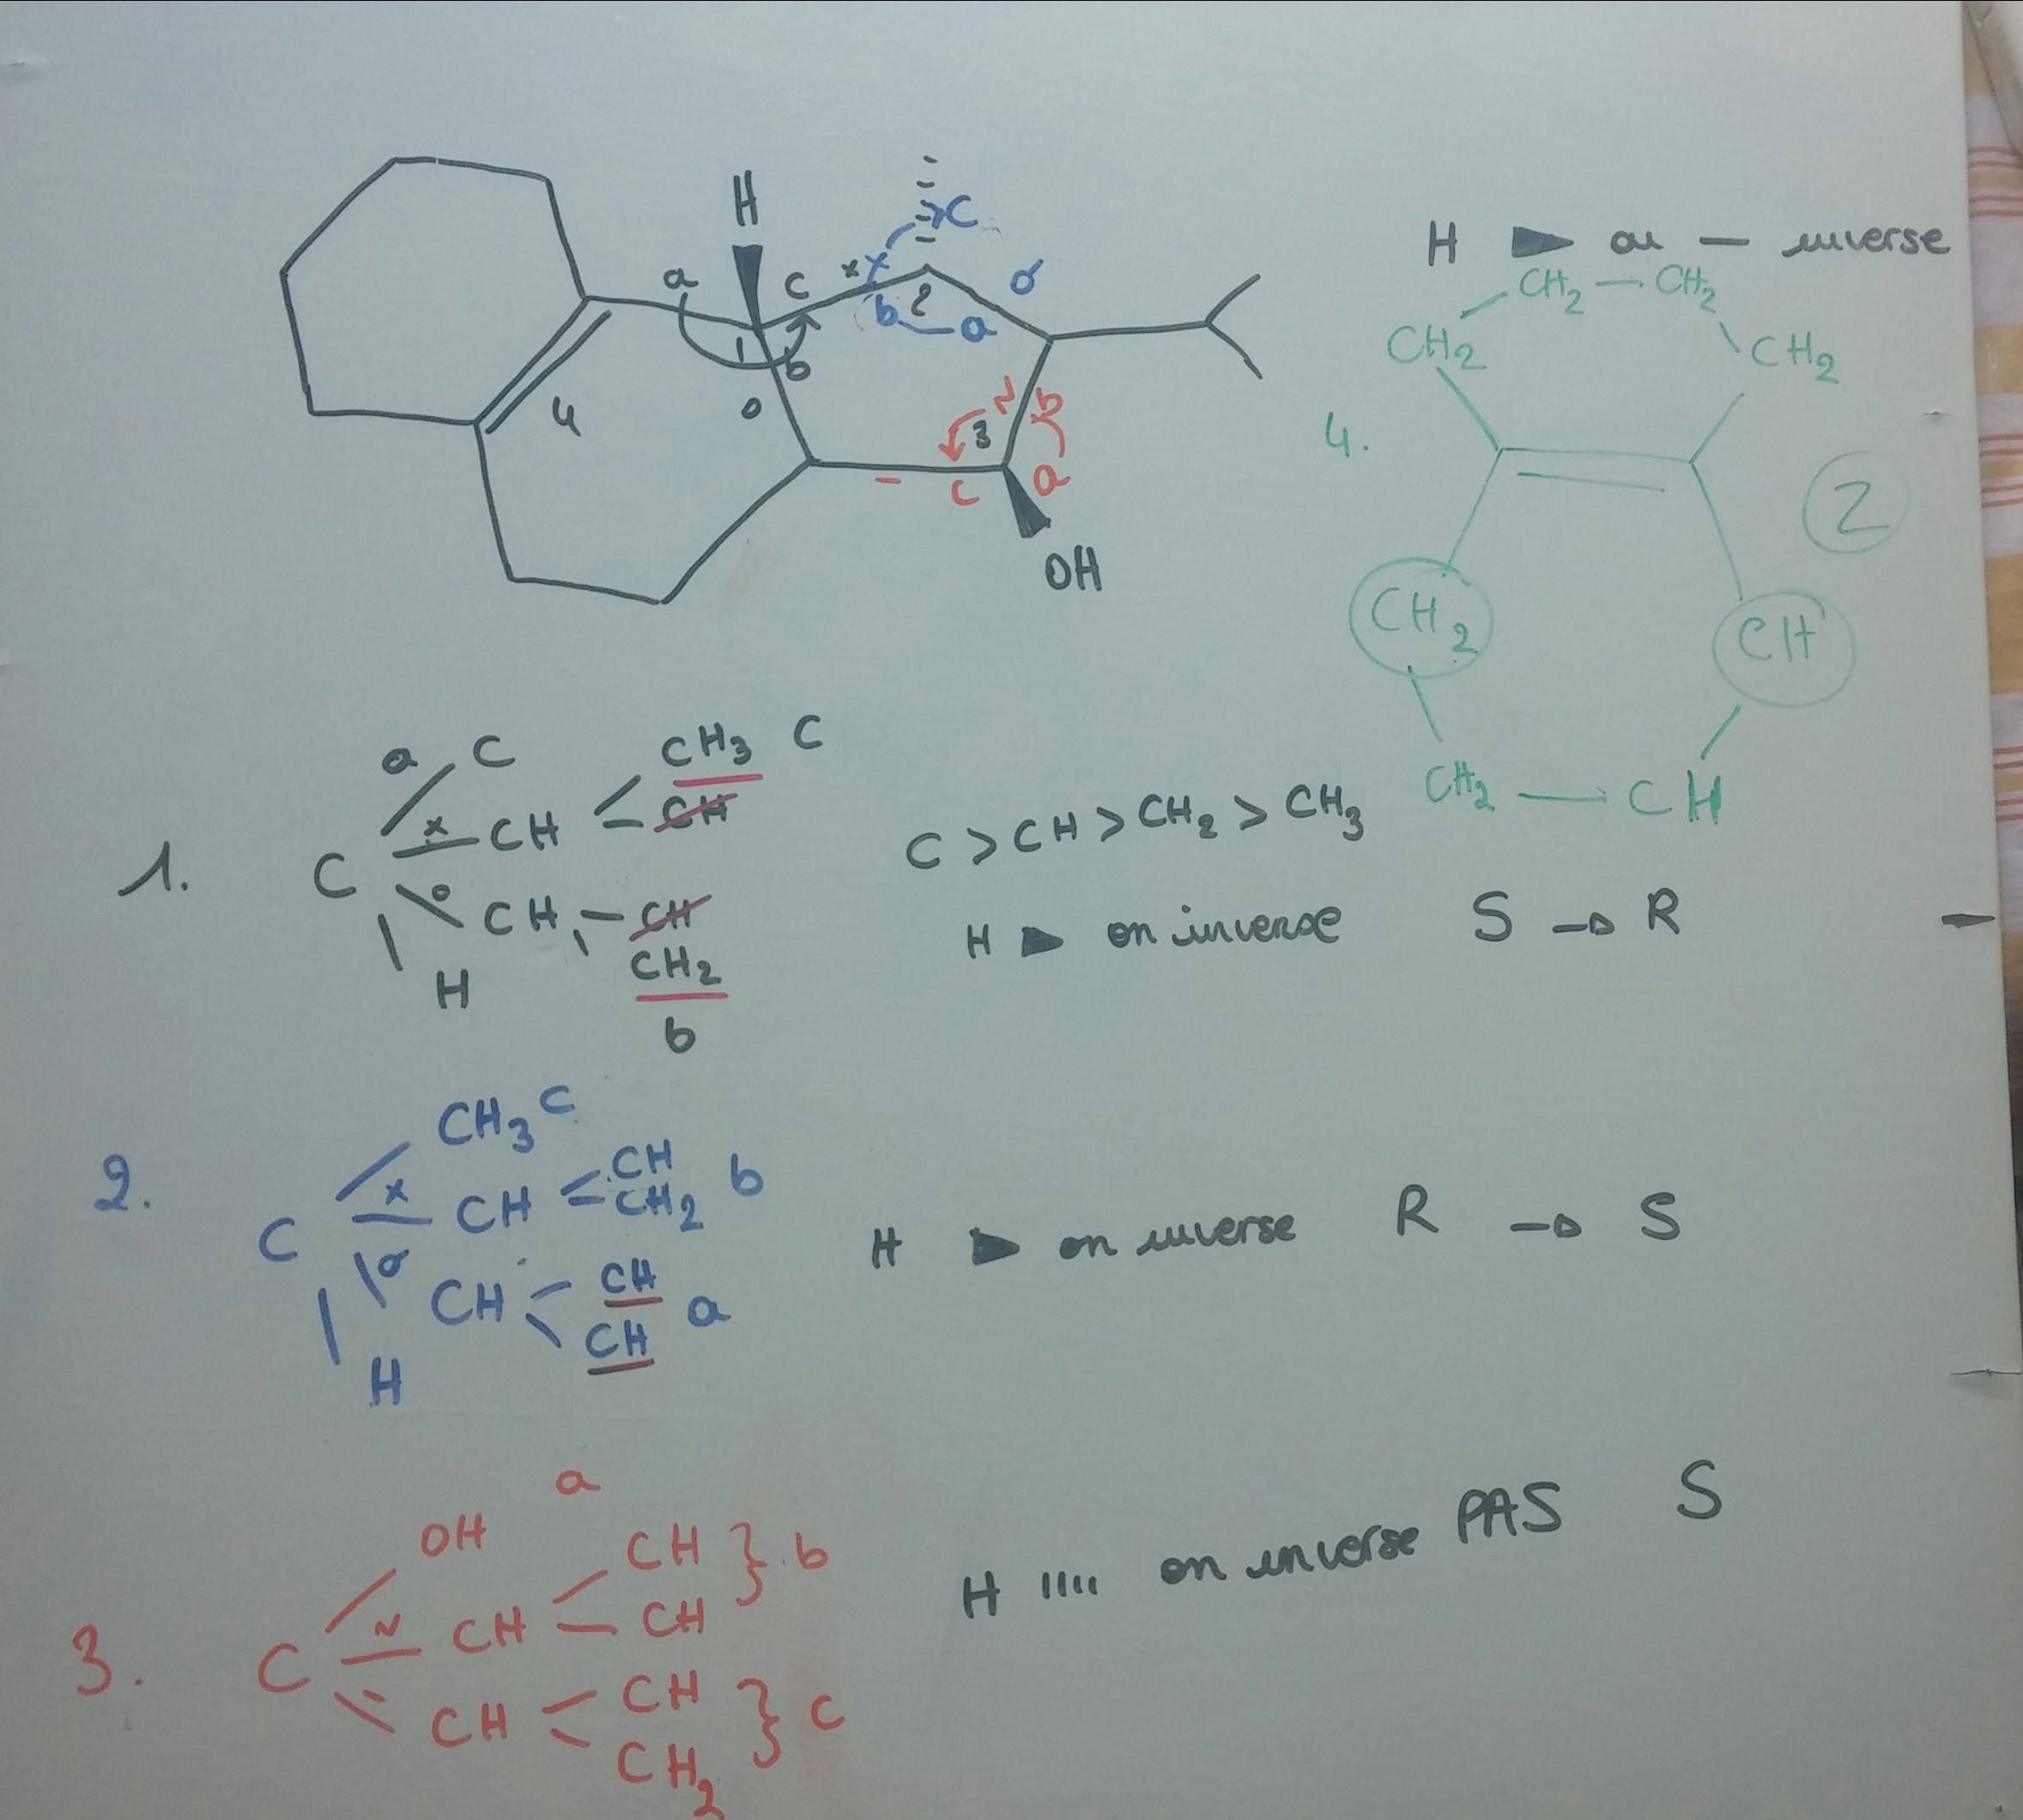 H
C
a
c
x
x
b
2
a
σ
1
b
4
o
N
b
3
-
c
a
OH
H ▶ ou — inverse
CH2 — CH2
CH2
CH2
4.
Z
CH2
CH
CH2 — CH
1.
a
C
CH3 c
C
x
CH
CH
o
CH
CH
CH2
H
b
C > CH > CH2 > CH3
H ▶ on inverse S → R
2.
CH3 c
C
x
CH
CH
CH2
b
σ
CH
CH
CH
a
H
H ▶ on inverse R → S
3.
a
OH
C
N
CH
CH
CH
} b
=
CH
CH
CH2
} c
H '''' on inverse PAS S